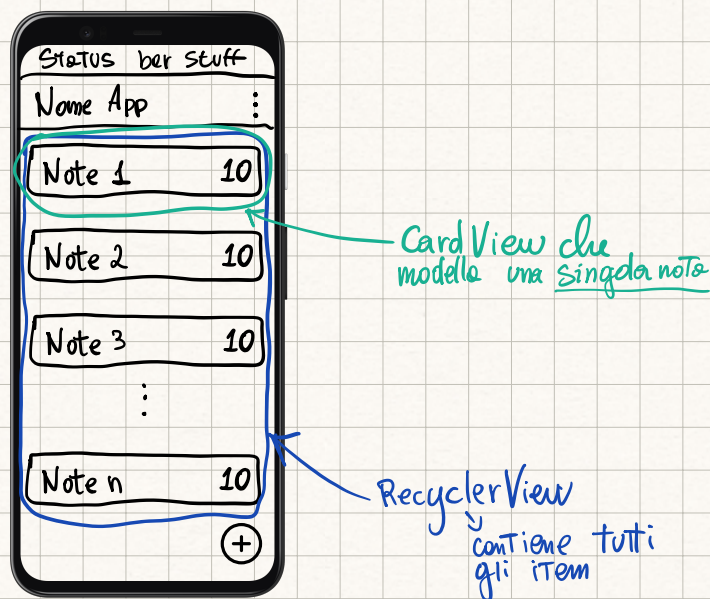 Status bar stuff
Nome App
Note 1 10
Note 2 10
Note 3 10
Note n 10
+
CardView che
modella una singola nota
RecyclerView
contiene tutti
gli item